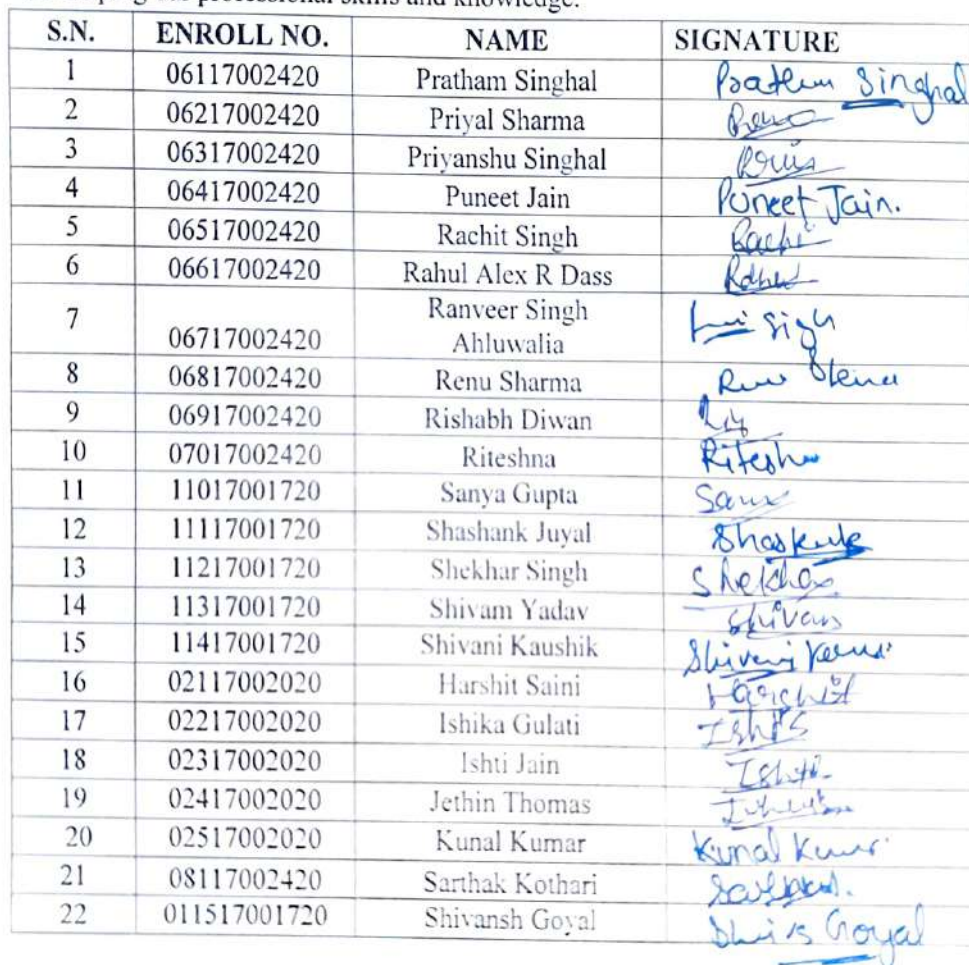 professional skills and knowledge.
S.N. ENROLL NO. NAME SIGNATURE
1 06117002420 Pratham Singhal Singhal
2 06217002420 Priyal Sharma
3 06317002420 Priyanshu Singhal
4 06417002420 Puneet Jain Puneet Jain.
5 06517002420 Rachit Singh
6 06617002420 Rahul Alex R Dass
7 06717002420 Ranveer Singh
Ahluwalia
8 06817002420 Renu Sharma
9 06917002420 Rishabh Diwan
10 07017002420 Riteshna
11 11017001720 Sanya Gupta
12 11117001720 Shashank Juyal
13 11217001720 Shekhar Singh Shekhar
14 11317001720 Shivam Yadav Shivam
15 11417001720 Shivani Kaushik Shivani
16 02117002020 Harshit Saini Harshit
17 02217002020 Ishika Gulati
18 02317002020 Ishti Jain Ishti
19 02417002020 Jethin Thomas
20 02517002020 Kunal Kumar Kunal
21 08117002420 Sarthak Kothari
22 011517001720 Shivansh Goyal Goyal